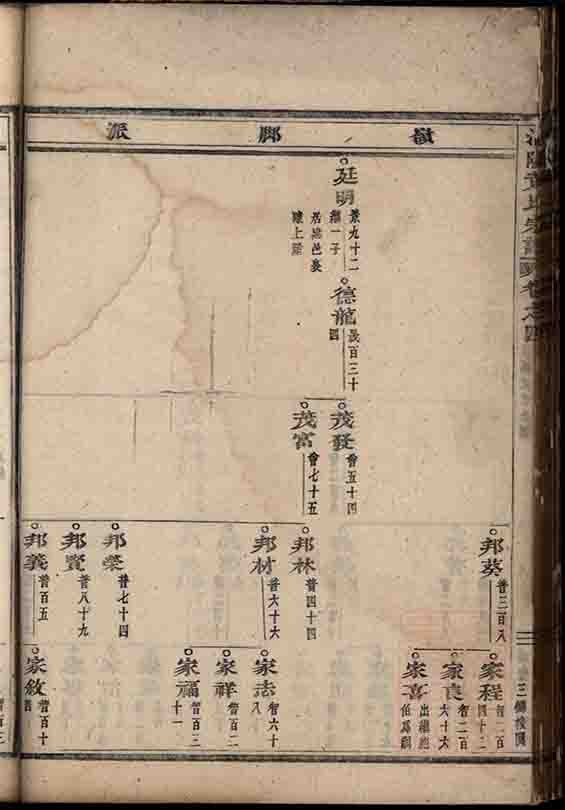 嶺腳派
廷明
景九十二
繼一子
德龍
茂百三十
四
茂發
曾五十四
茂富
曾七十五
邦葵
昔三百八
邦林
昔四十四
邦材
昔六十六
邦榮
昔七十四
邦賢
昔八十九
邦義
昔百五
家程
智二百
四十二
家良
智二百
六十六
家喜
出繼
伯為嗣
家志
智六十
八
家祥
智百二
家福
智百三
十一
家敘
智百十
四
宗譜
卷之四
三鱣